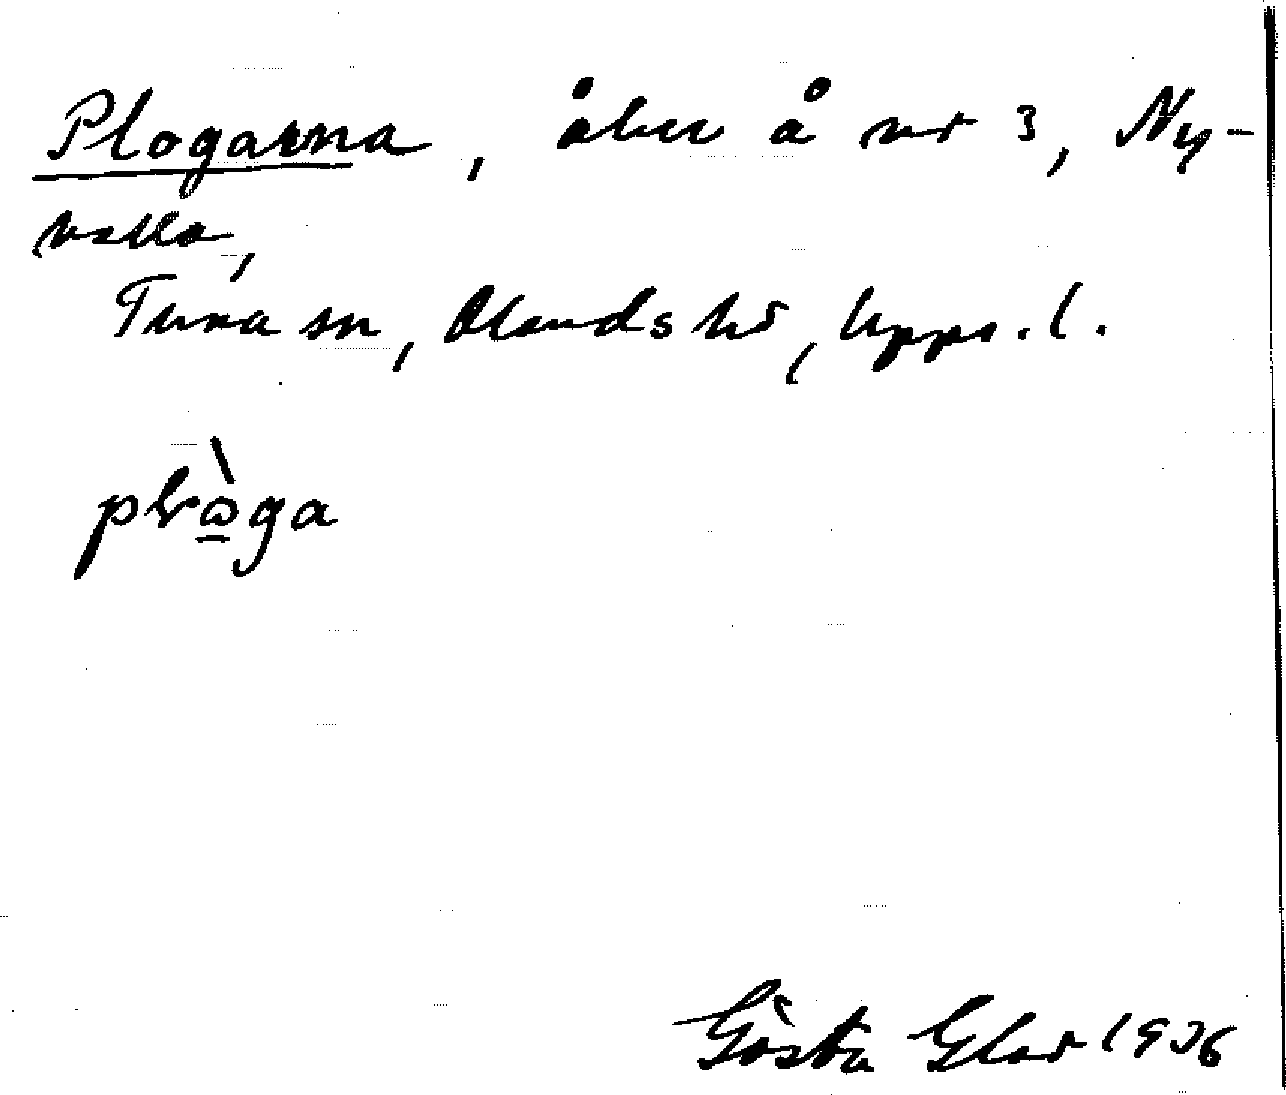 Plogarna, åker å nr 3, Ny-
valla,
Tuna sn, Olands hd, Upps. l.
plωga
Gösta Glar 1936